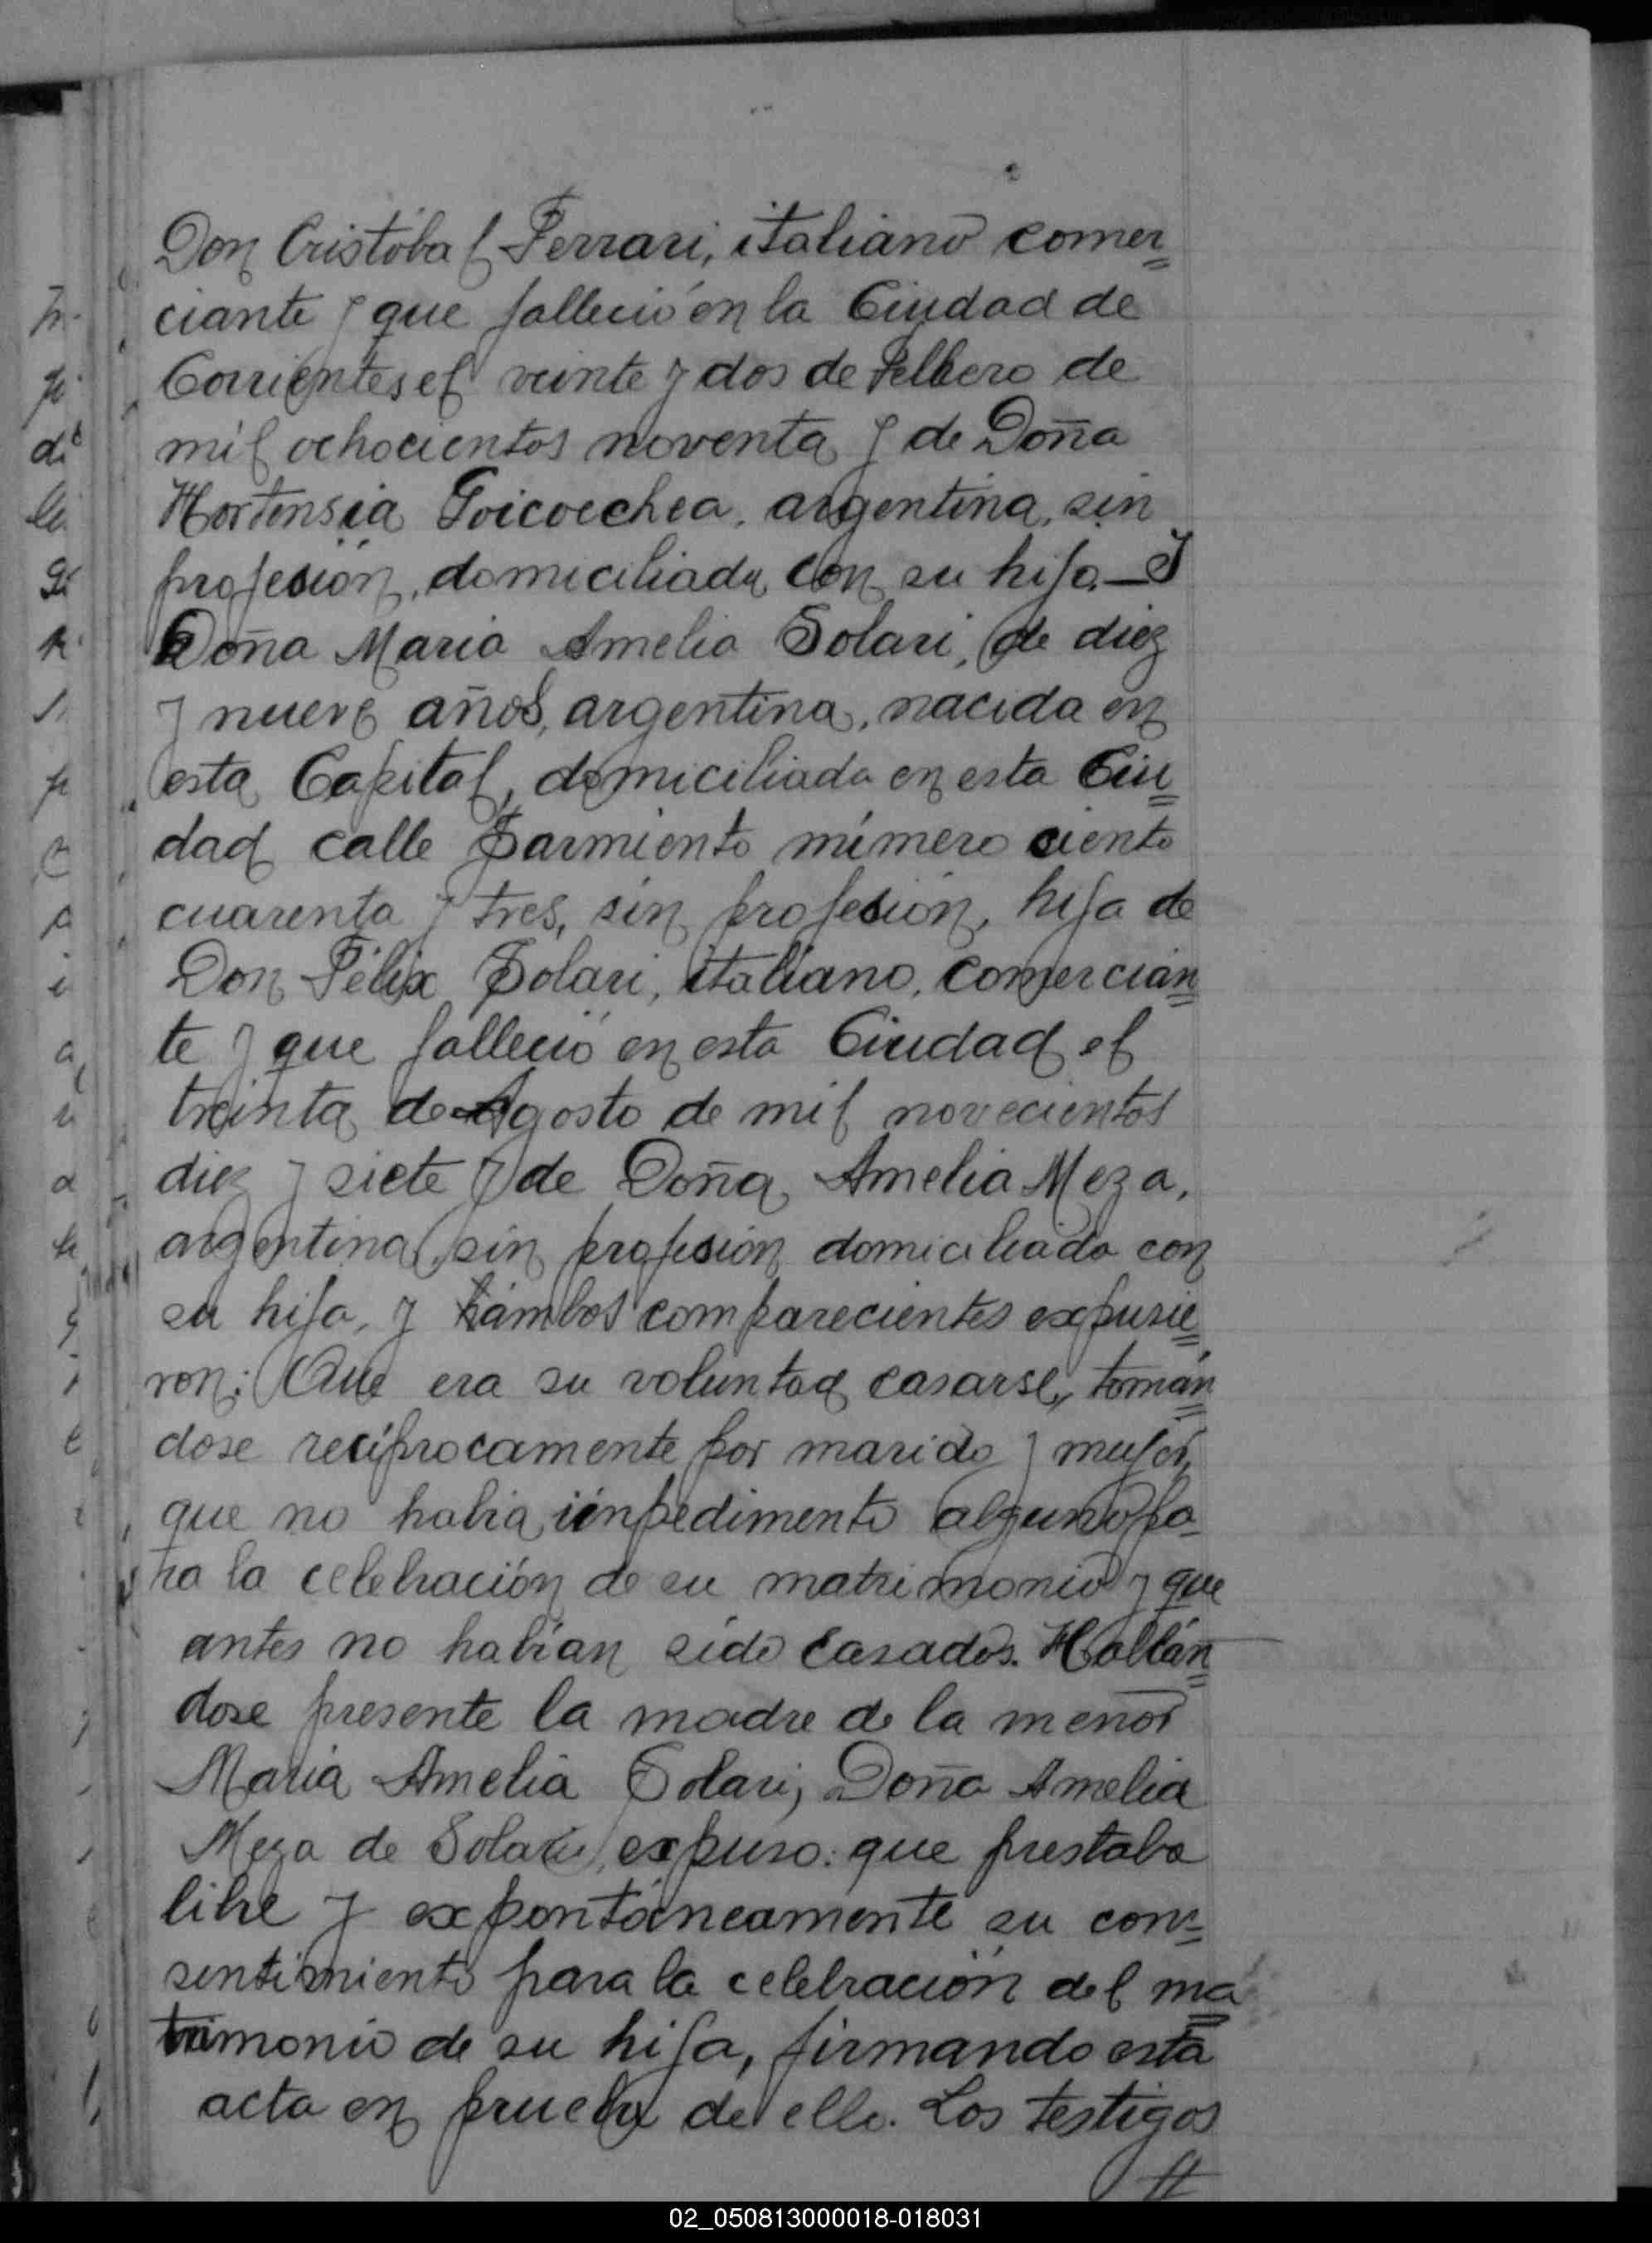 Don Cristóbal Ferrari, italiano comer=
ciante y que falleció en la Ciudad de
Corrientes el veinte y dos de Febrero de
mil ochocientos noventa y de Doña
Hortensia Goicoechea, argentina, sin
profesión, domiciliada con su hijo. — Y
Doña Maria Amelia Solari, de diez
y nueve años, argentina, nacida en
esta Capital, domiciliada en esta Ciu=
dad calle Sarmiento número ciento
cuarenta y tres, sin profesión, hija de
Don Félix Solari, italiano, comercian=
te y que falleció en esta Ciudad el
treinta de Agosto de mil novecientos
diez y siete y de Doña Amelia Meza,
argentina, sin profesión domiciliada con
su hija, y ámbos comparecientes expusie=
ron: Que era su voluntad casarse, tomán=
dose recíprocamente por marido y mujer,
que no habia impedimento alguno pa-
ra la celebración de su matrimonio y que
antes no habían sido casados. Hallán=
dose presente la madre de la menor
Maria Amelia Solari, Doña Amelia
Meza de Solari, expuso: que prestaba
libre y expontáneamente su con=
sentimiento para la celebración del ma=
trimonio de su hija, firmando esta
acta en prueba de ello. Los testigos
02_050813000018-018031